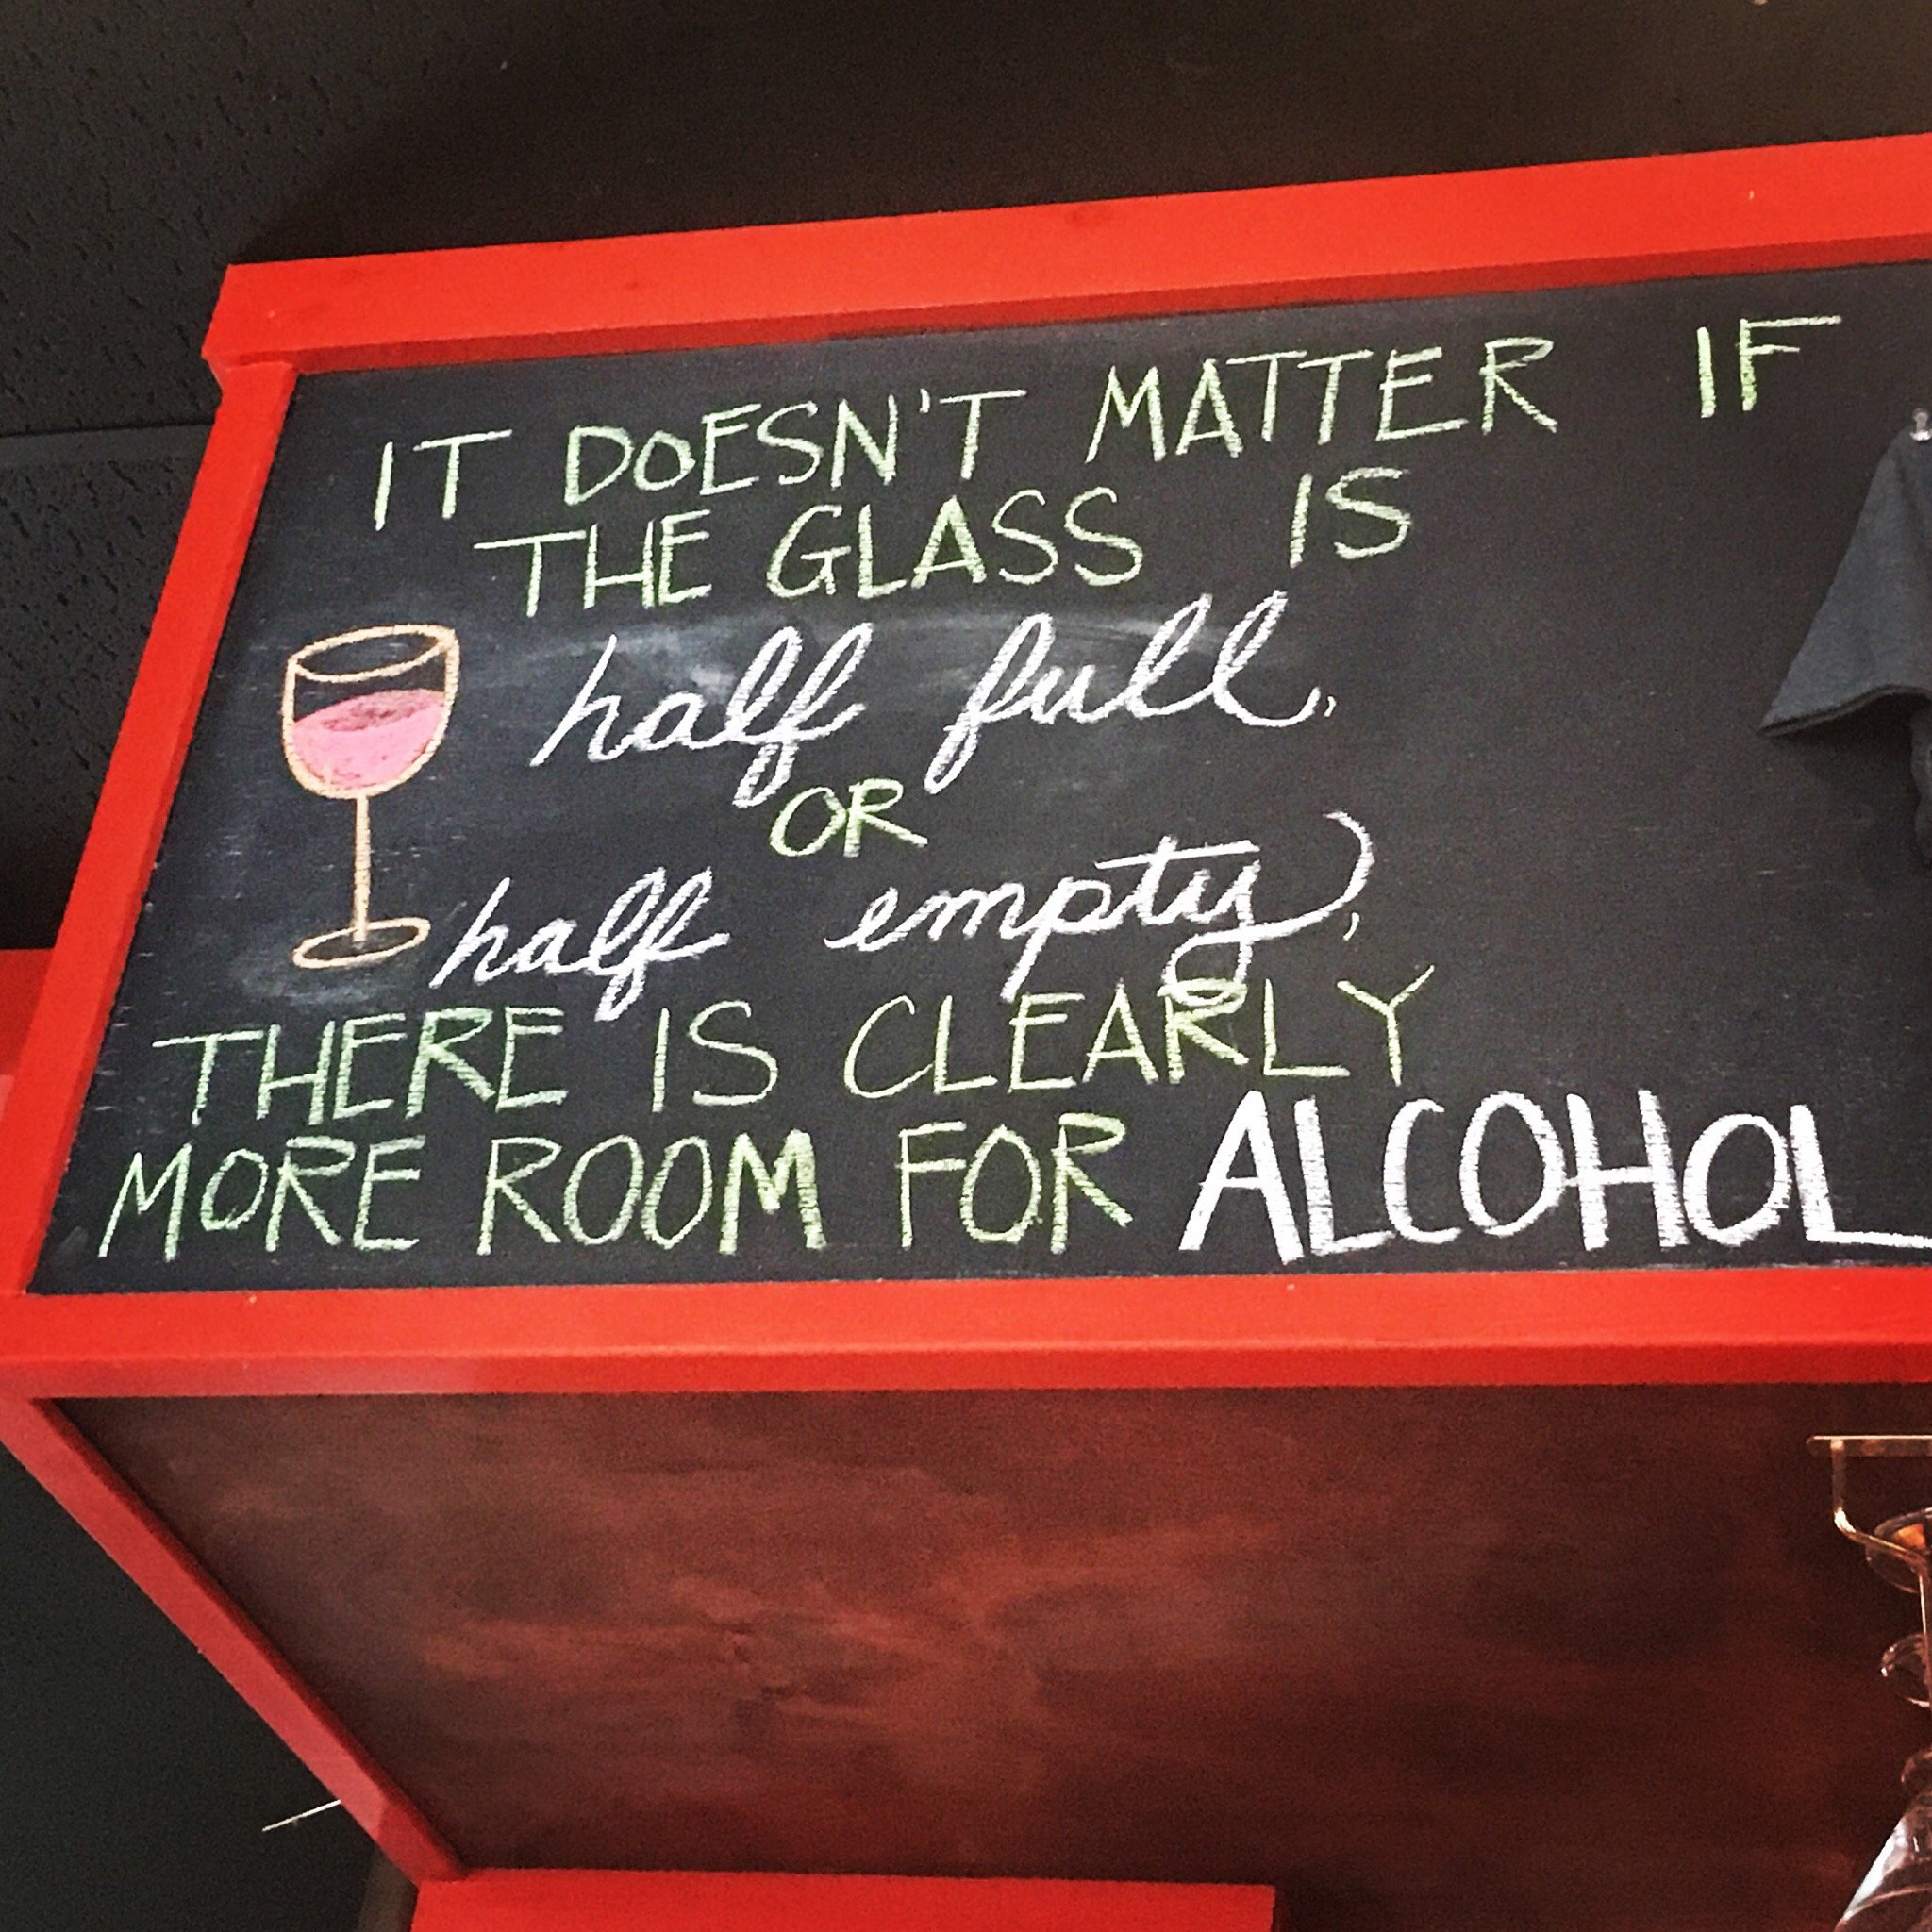 IT DOESN'T MATTER IF
THE GLASS IS
half full,
OR
half empty,
THERE IS CLEARLY
MORE ROOM FOR ALCOHOL